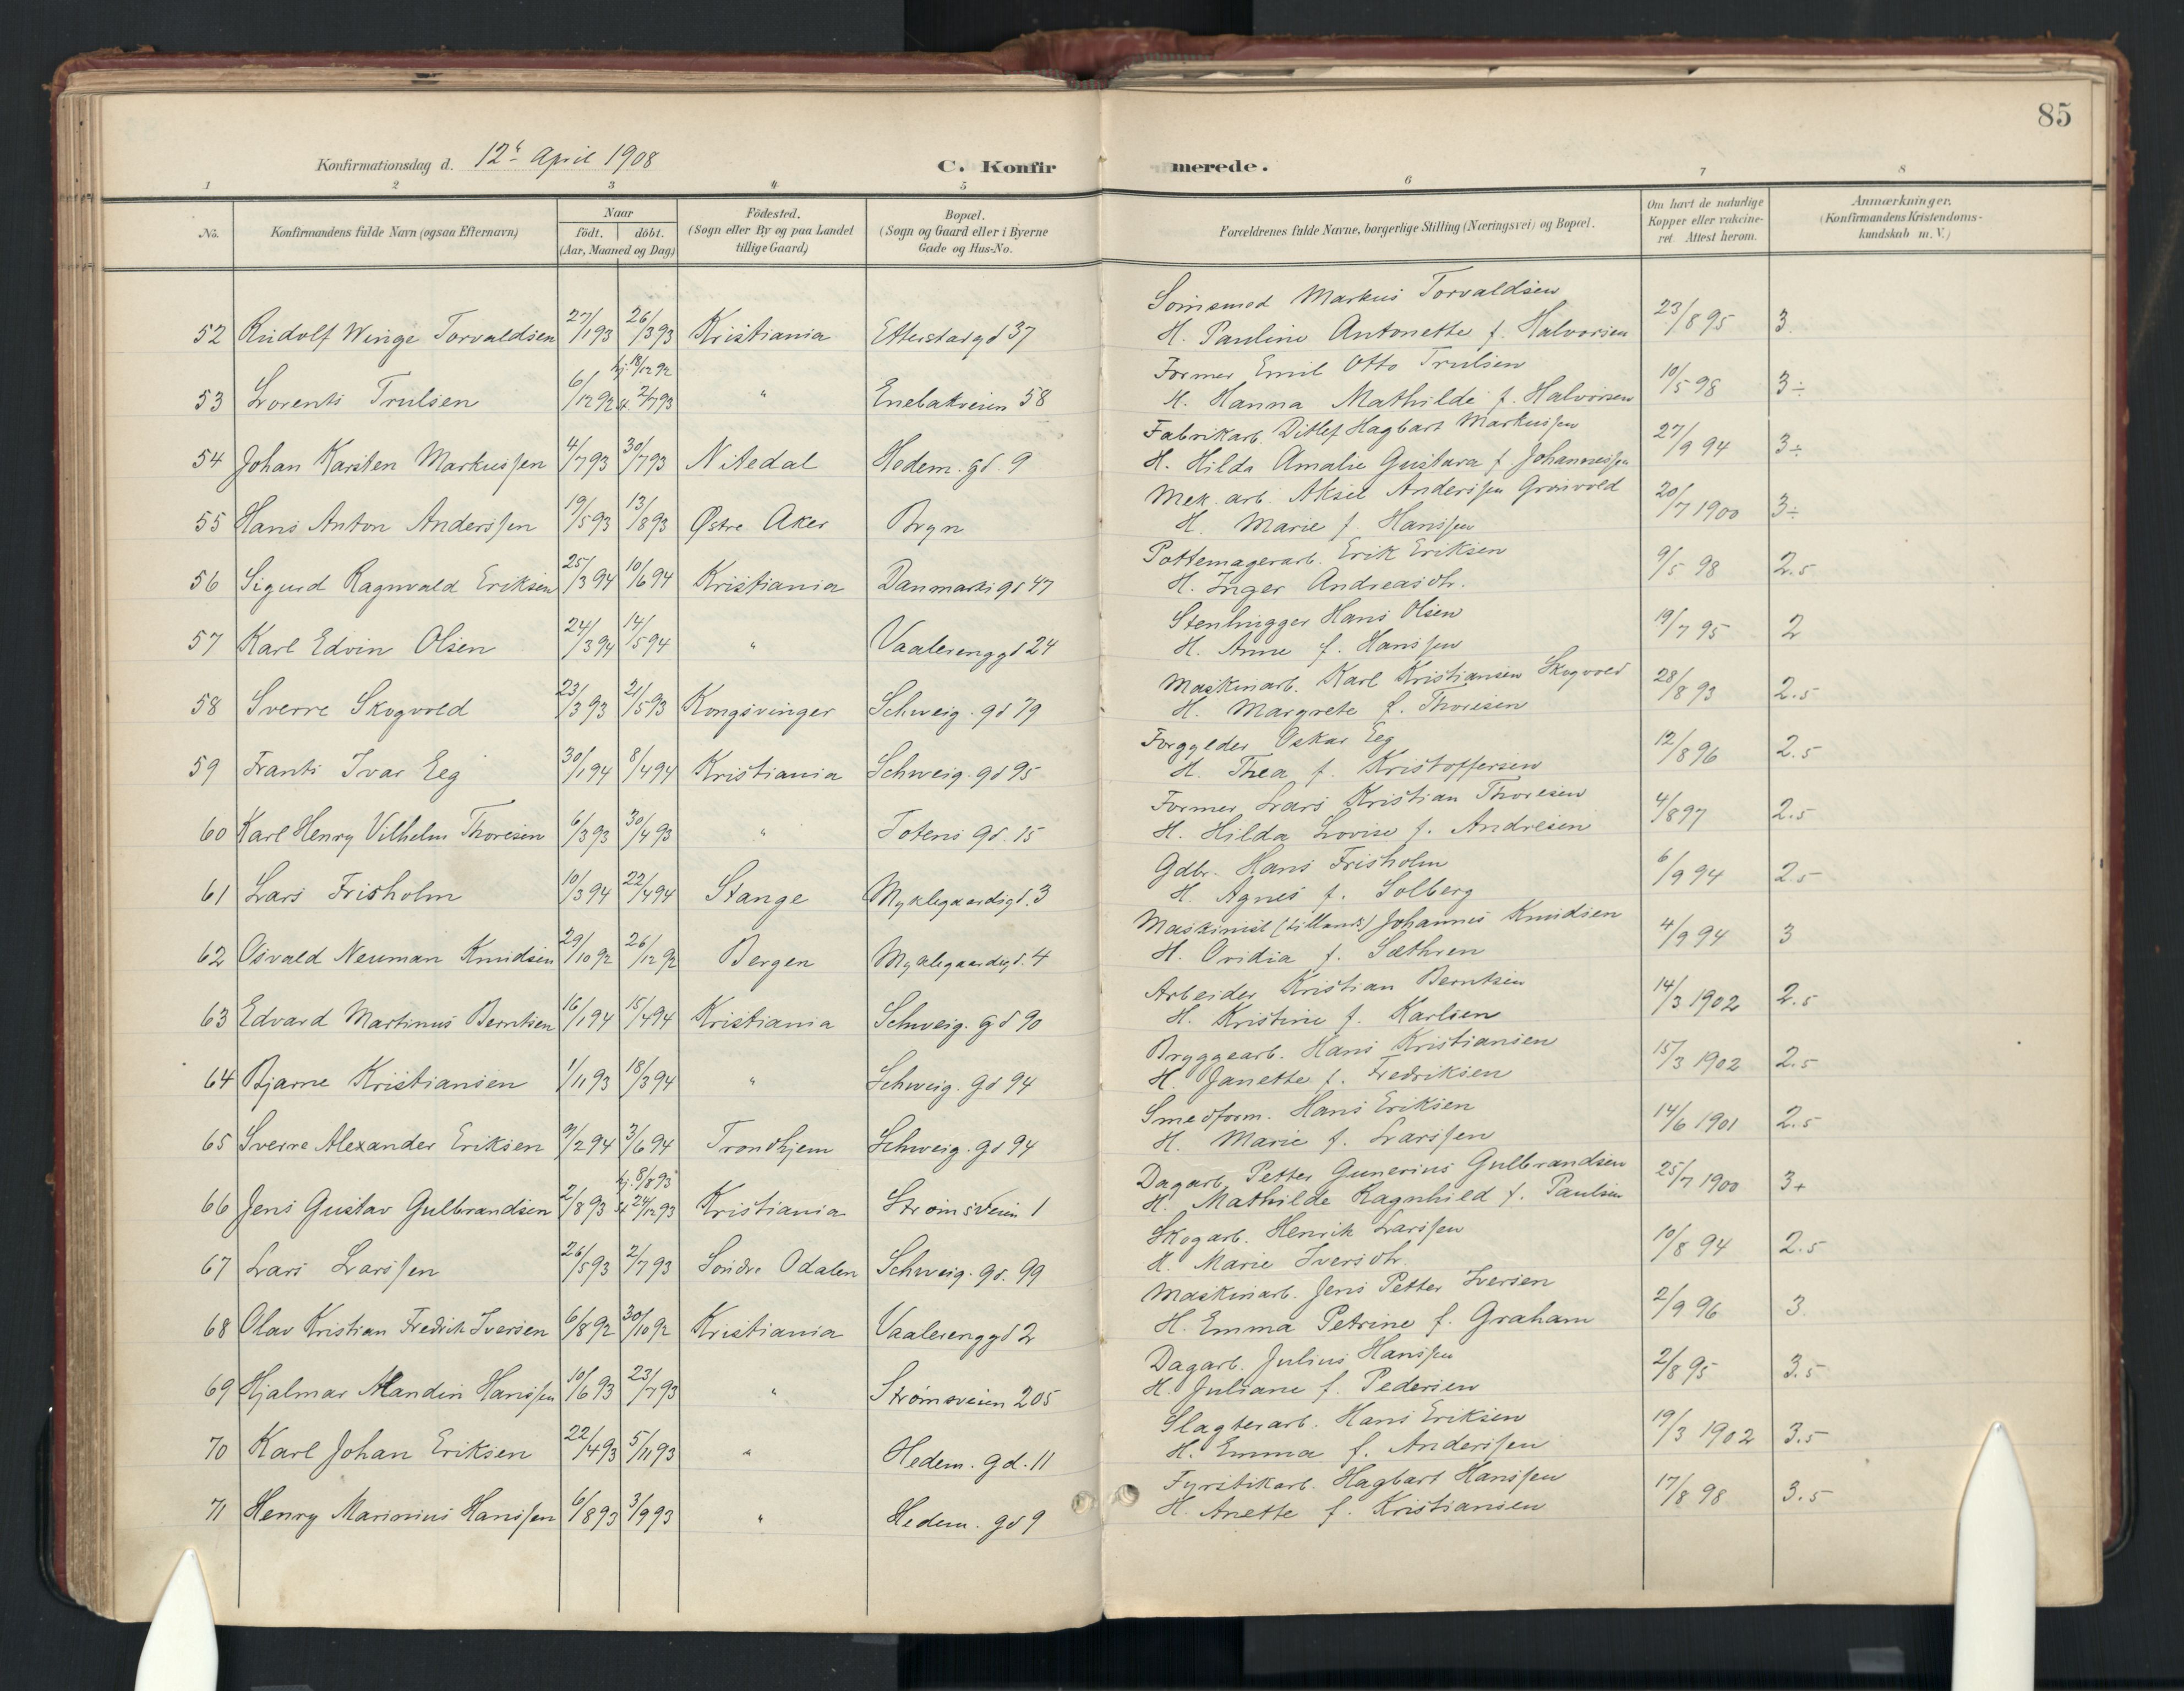 85
Konfirmationsdag d. 12te April 1908 C. Konfir merede.
1 2 3 4 5 6 7 8
No. Konfirmandens fulde Navn (ogsaa Efternavn) Naar født. døbt. (Aar, Maaned og Dag) Fødested. (Sogn eller By og paa Landet tillige Gaard) Bopæl. (Sogn og Gaard eller i Byerne Gade og Hus-No. Forældrenes fulde Navne, borgerlige Stilling (Næringsvei) og Bopæl. Om havt de naturlige Kopper eller vakcineret. Attest herom. Anmærkninger. (Konfirmandens Kristendomskundskab m. V.)
52 Rudolf Winge Torvaldsen 27/1 93 26/3 93 Kristiania Etterstadgd 37 Sømsmed Markus Torvaldsen
H. Pauline Antonette f. Halvorsen 23/8 95 3
53 Lorents Trulsen 6/12 92 hj. 18/12 92 st. 2/7 93 " Enebakveien 58 Former Emil Otto Trulsen
H. Hanna Mathilde f. Halvorsen 10/5 98 3÷
54 Johan Karsten Markussen 4/7 93 30/7 93 Nitedal Hedem. gd. 9 Fabrikarb. Ditlef Hagbart Markussen
H. Hilda Amalie Gustava f. Johannessen 27/9 94 3÷
55 Hans Anton Anderssen 19/5 93 13/8 93 Østre Aker Bryn Mek. arb. Aksel Anderssen Grønvold
H. Marie f. Hanssen 20/7 1900 3÷
56 Sigurd Ragnvald Eriksen 25/3 94 10/6 94 Kristiania Danmarks gd 47 Pottemagerarb. Erik Eriksen
H. Inger Andreasdtr. 9/5 98 2.5
57 Karl Edvin Olsen 24/3 94 14/5 94 " Vaalerenggd 24 Stenhugger Hans Olsen
H. Anne f. Hanssen 19/7 95 2
58 Sverre Skogvold 23/3 93 21/5 93 Kongsvinger Schweig. gd 79 Maskinarb. Karl Kristiansen Skogvold
H. Margrete f. Thoresen 28/8 93 2.5
59 Frants Ivar Eeg 30/1 94 8/4 94 Kristiania Schweig. gd 95 Forgylder Oskar Eeg
H. Thea f. Kristoffersen 12/8 96 2.5
60 Karl Henry Vilhelm Thoresen 6/3 93 30/4 93 " Totens gd. 15 Former Lars Kristian Thoresen
H. Hilda Lovise f. Andresen 4/8 97 2.5
61 Lars Frisholm 10/3 94 22/4 94 Stange Myklegaardsgd. 3 Gdbr. Hans Frisholm
H. Agnes f. Solberg 6/9 94 2.5
62 Osvald Neuman Knudsen 29/10 92 26/12 92 Bergen Myklegaardsgd. 4 Maskinist (tillands) Johannes Knudsen
H. Ovidia f. Sæthren 4/9 94 3
63 Edvard Martinus Berntsen 16/1 94 15/4 94 Kristiania Schweig. gd 90 Arbeider Kristian Berntsen
H. Kristine f. Karlsen 14/3 1902 2.5
64 Bjarne Kristiansen 1/11 93 18/3 94 " Schweig. gd 94 Bryggearb. Hans Kristiansen
H. Janette f. Fredriksen 15/3 1902 2.5
65 Sverre Alexander Eriksen 9/2 94 3/6 94 Trondhjem Schweig. gd 94 Smedform. Hans Eriksen
H. Marie f. Larssen 14/6 1901 2.5
66 Jens Gustav Gulbrandsen 2/8 93 hj. 8/8 93 st. 24/12 93 Kristiania Strømsveien 1 Dagarb. Petter Gunerius Gulbrandsen
H. Mathilde Ragnhild f. Paulsen 25/7 1900 3+
67 Lars Larssen 26/5 93 2/7 93 Søndre Odalen Schweig. gd. 99 Skogarb. Henrik Larssen
H. Marie Iversdtr. 10/8 94 2.5
68 Olav Kristian Fredrik Iversen 6/8 92 30/10 92 Kristiania Vaalerenggd 2 Maskinarb. Jens Petter Iversen
H. Emma Petrine f. Graham 2/9 96 3
69 Hjalmar Mandin Hanssen 10/6 93 23/7 93 " Strømsveien 205 Dagarb. Julius Hanssen
H. Juliane f. Pedersen 2/8 95 3.5
70 Karl Johan Eriksen 22/4 93 5/11 93 " Hedem. gd. 11 Slagterarb. Hans Eriksen
H. Emma f. Anderssen 19/3 1902 3.5
71 Henry Marinius Hanssen 6/8 93 3/9 93 " Hedem. gd 9 Fyrstikarb. Hagbart Hanssen
H. Anette f. Kristiansen 17/8 98 3.5